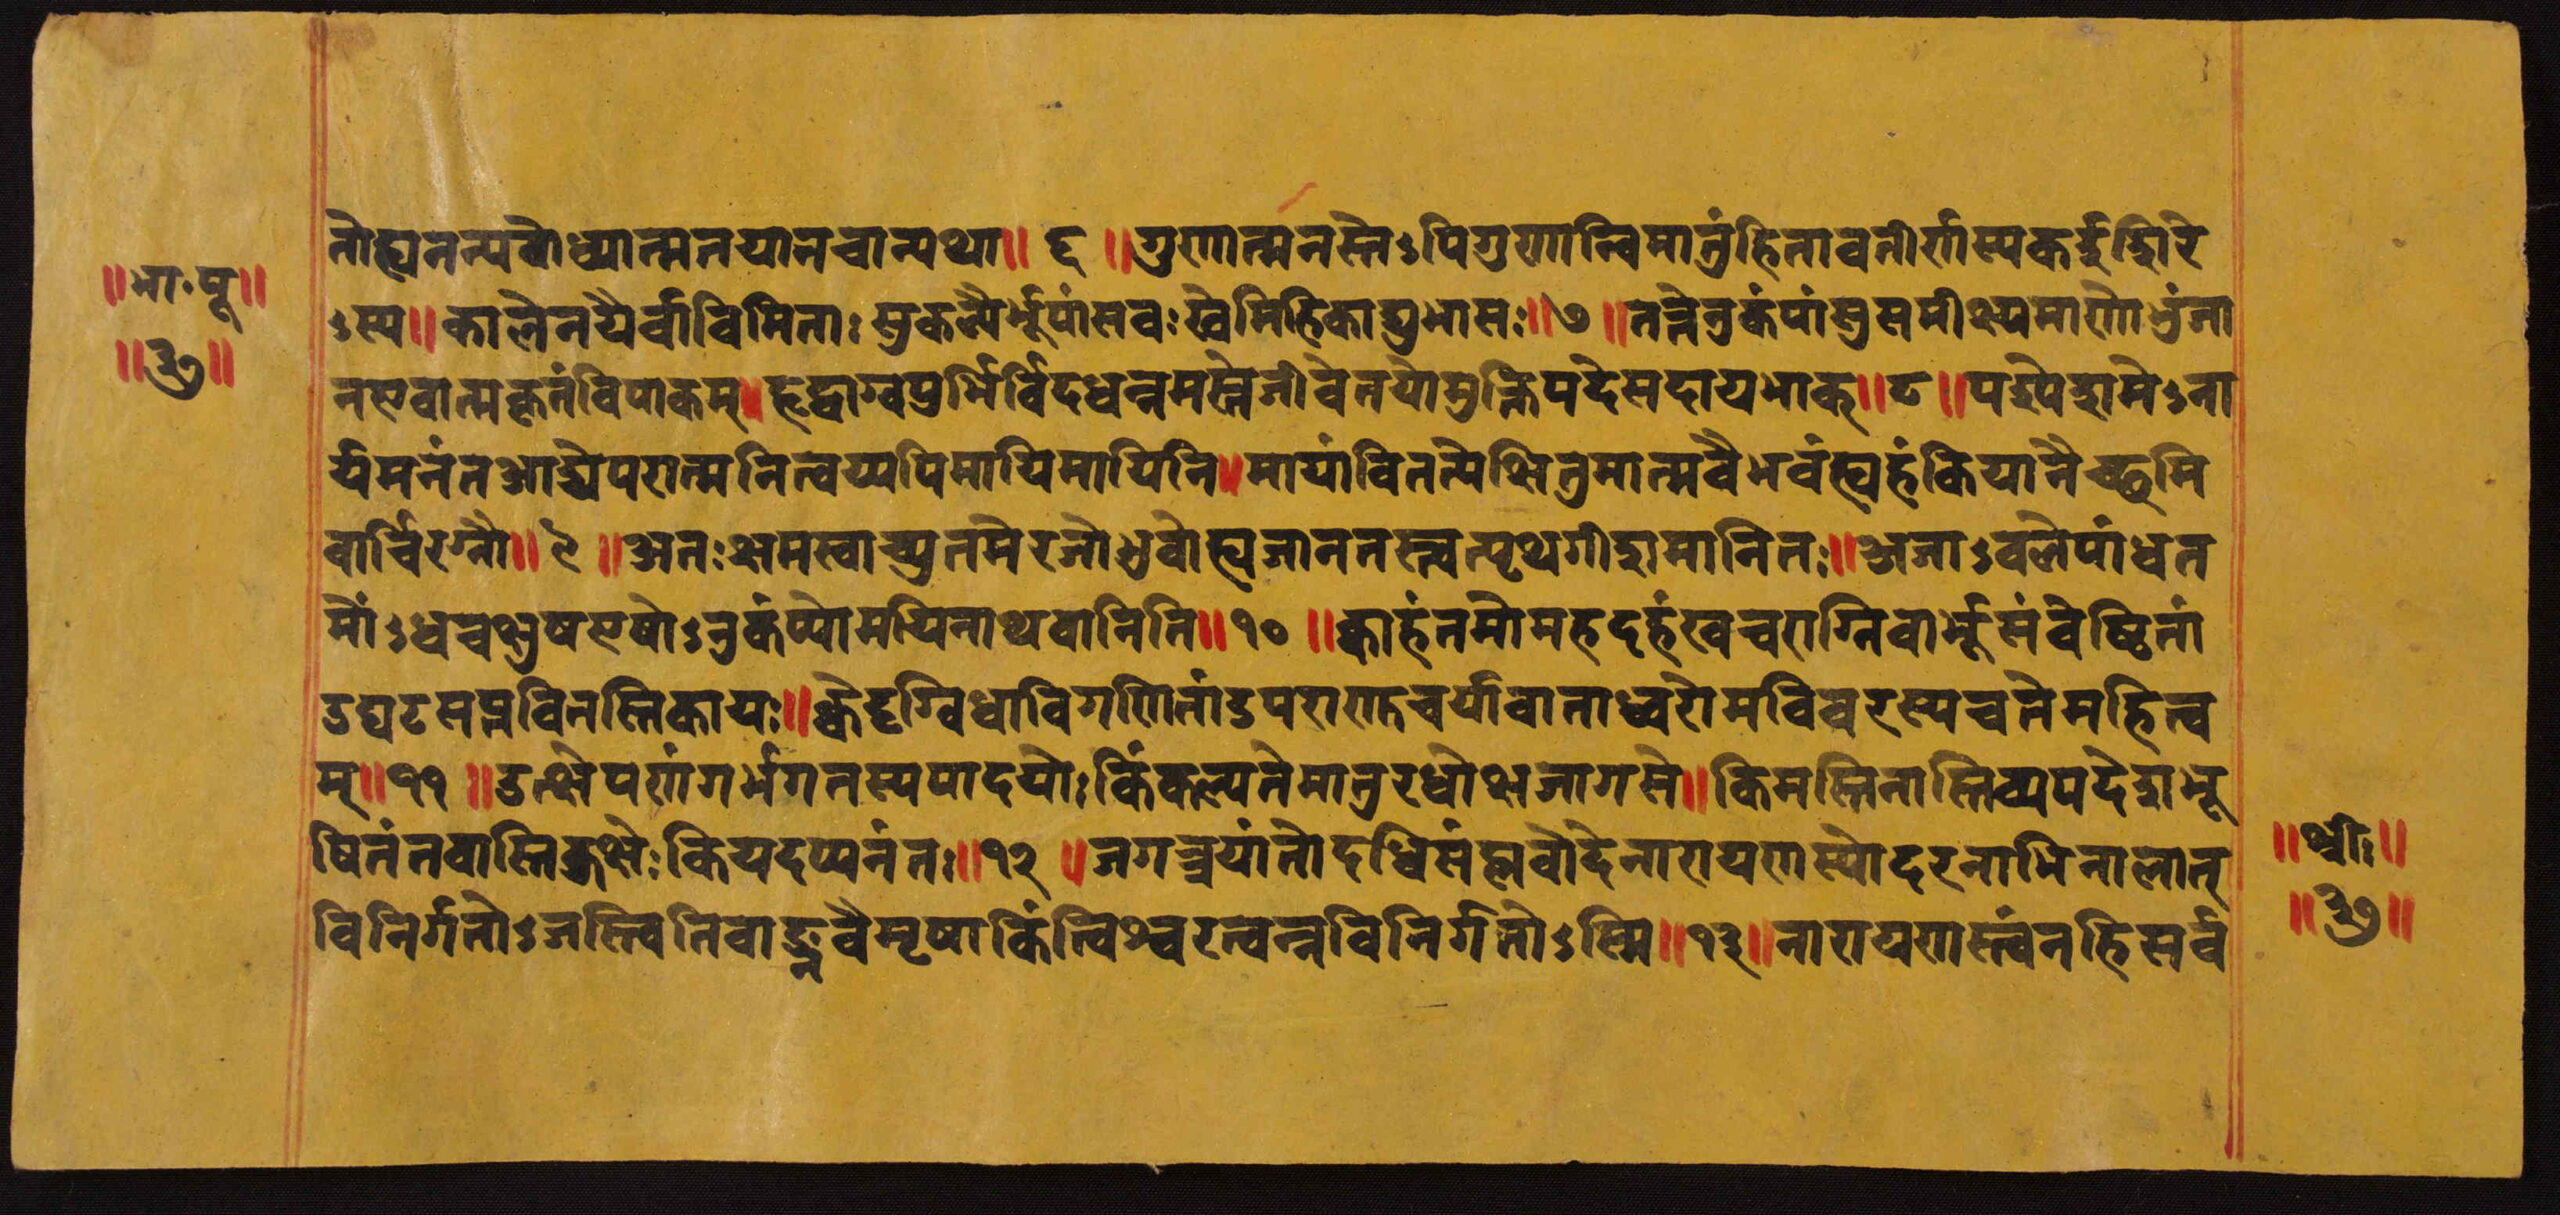 ॥भाः पू॥
॥३७॥
तोह्यनन्यबोध्यात्मतयानचान्यथा॥ ६ ॥गुणात्मनस्तेऽपिगुणान्विमातुंहितावतीर्णस्यकईशिरे
ऽस्य॥कालेनयैर्वाविमिताः सुकल्पैर्भूपांसवः खेमिहिकाद्युभासः॥७॥तत्तेनुकंपांसुसमीक्ष्यमाणोभुंजा
नएवात्मकृतंविपाकम्॥हृद्वाग्वपुर्भिर्विदधन्नमस्तेजीवेतयोमुक्तिपदेसदायभाक्॥८॥पश्येशमेऽना
र्यमनंतआद्येपरात्मनित्वय्यपिमायिमायिनि॥मायांवितत्येक्षितुमात्मवैभवंह्यहंकियानैच्छमि
वार्चिरग्नौ॥९॥अतः क्षमस्वाच्युतमेरजोभुवोह्यजानतस्त्वत्पृथगीशमानिनः॥अजाऽवलेपांधत
मोंऽधचक्षुषएषोऽनुकंप्योमयिनाथवानिति॥१०॥क्वाहंतमोमहदहंखचराग्निवार्भूसंवेष्टितां
डघटसप्तवितस्तिकायः॥क्वेदृग्विधाविगणितांडपराणुचर्यावाताध्वरोमविवरस्यचतेमहित्व
म्॥११॥उत्क्षेपणंगर्भगतस्यपादयोः किंकल्पतेमातुरधोक्षजागसे॥किमस्तिनास्तिव्यपदेशभू
षितंतवास्तिकुक्षेः कियदप्यनंतः॥१२॥जगत्त्रयांतोदधिसंप्लवोदेनारायणस्योदरनाभिनालात्
विनिर्गतोऽजस्त्वितिवाङ्नवैमृषाकिंत्वीश्वरत्वन्नविनिर्गतोऽस्मि॥१३॥नारायणस्त्वंनहिसर्व
॥श्रीः॥
॥३७॥